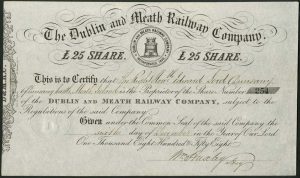 The Dublin and Meath Railway Company.
£25 SHARE. £25 SHARE.
This is to Certify that Edward Lord Dunsany
of Dunsany Castle Meath Ireland is the Proprietor of the Share Number 254
of the DUBLIN AND MEATH RAILWAY COMPANY, subject to the
Regulations of the said Company.
Given under the Common Seal of the said Company the
day of December in the Year of Our Lord
One Thousand Eight Hundred & Fifty Eight